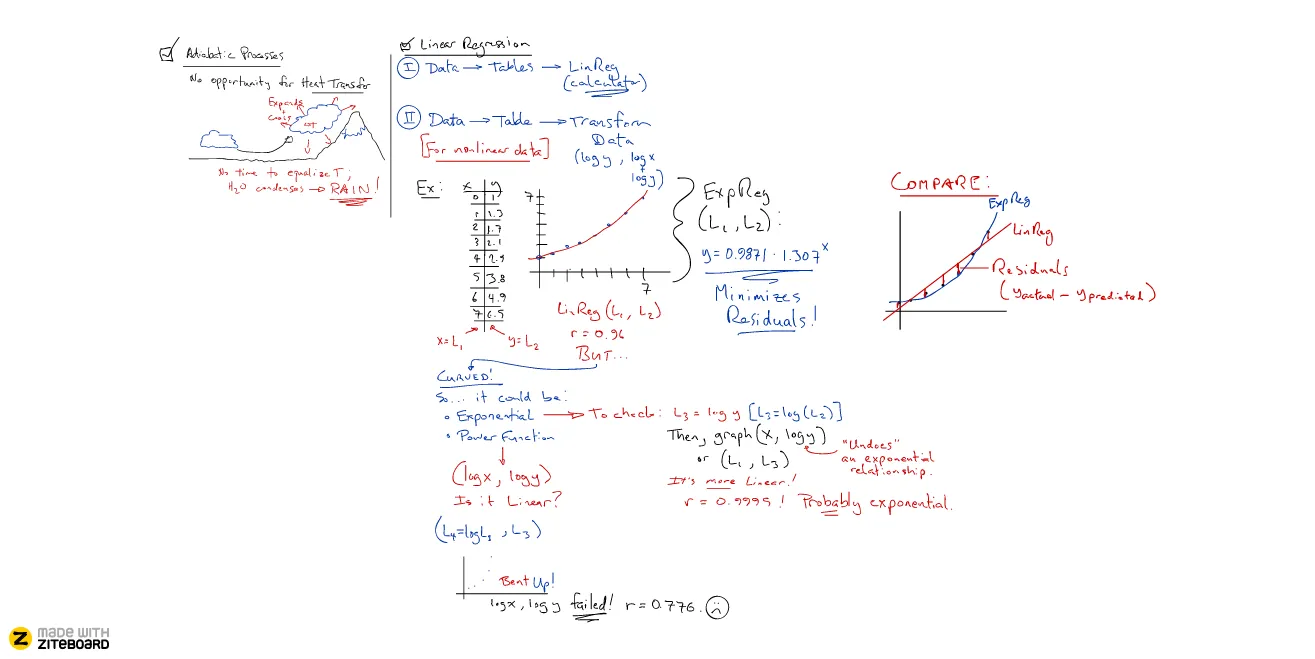 Adiabatic Processes
No opportunity for Heat Transfer
Expands
+
cools
HOT
No time to equalize T;
H2O condenses → RAIN!
Linear Regression
I Data → Tables → LinReg
(calculator)
II Data → Table → Transform
Data
[For nonlinear data]
(log y, log x
+
log y)
Ex:
x y
0 1
1 1.3
2 1.7
3 2.1
4 2.9
5 3.8
6 4.9
7 6.5
x=L1 y=L2
7
7
ExpReg
(L1, L2):
y=0.9871·1.307^x
Minimizes
Residuals!
LinReg (L1, L2)
r=0.96
BUT...
COMPARE:
ExpReg
LinReg
Residuals
(yactual - ypredicted)
CURVED!
So... it could be:
• Exponential → To check: L3 = log y [L3=log(L2)]
• Power Function
Then, graph (x, log y)
or (L1, L3)
"Undoes"
an exponential
relationship.
It's more Linear!
r = 0.9995! Probably exponential.
(log x, log y)
Is it Linear?
(L4=log L1, L3)
Bent Up!
log x, log y failed! r=0.776.
MADE WITH
ZITEBOARD